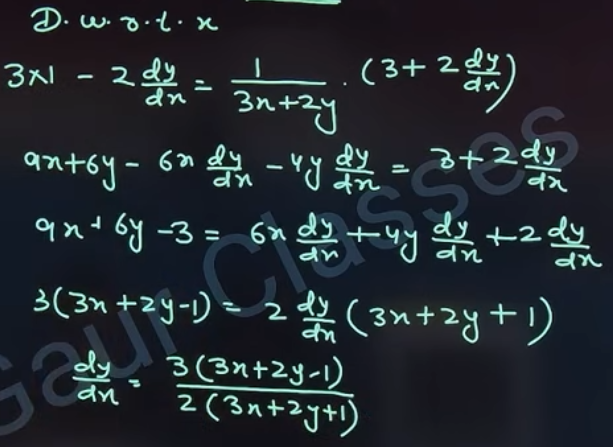 D. w. r. t. x
3×1 - 2 dy/dx = 1/(3x+2y) . (3 + 2 dy/dx)
9x+6y - 6x dy/dx - 4y dy/dx = 3 + 2 dy/dx
9x + 6y - 3 = 6x dy/dx + 4y dy/dx + 2 dy/dx
3(3x+2y-1) = 2 dy/dx (3x+2y+1)
dy/dx = 3(3x+2y-1)/2(3x+2y+1)
Gaur Classes